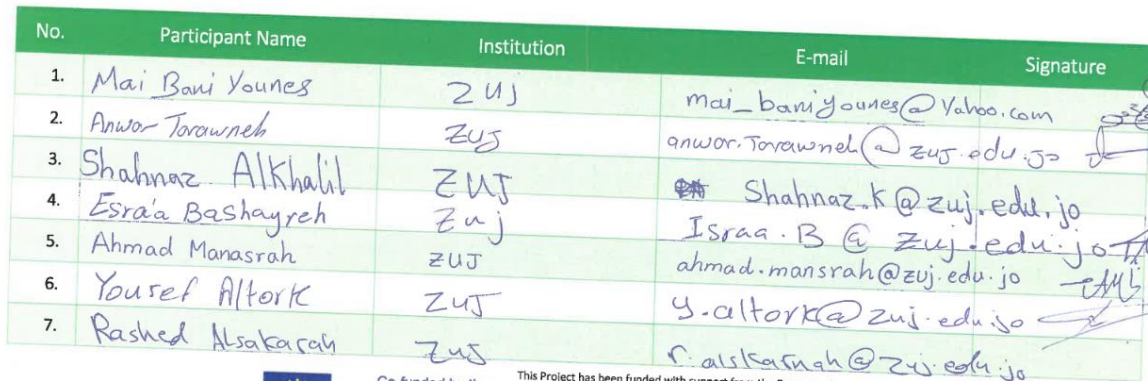 No. Participant Name Institution E-mail Signature
1. Mai Bani Younes ZUJ mai_baniyounes@Yahoo.com
2. Anwar Tarawneh ZUJ anwar.Tarawneh@zuj.edu.jo
3. Shahnaz AlKhalil ZUJ Shahnaz.K@zuj.edu.jo
4. Esra'a Bashayreh Zuj Israa.B@zuj.edu.jo
5. Ahmad Manasrah ZUJ ahmad.mansrah@zuj.edu.jo
6. Yousef Altork ZUJ y.altork@zuj.edu.jo
7. Rashed Alsakarnah ZUJ r.alskarnah@zuj.edu.jo
This Project has been funded with support from the